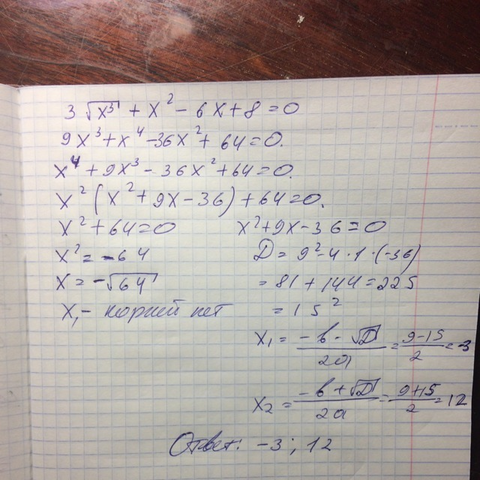 3√x³ + x² - 6x + 8 = 0
9x³ + x⁴ - 36x² + 64 = 0.
x⁴ + 9x³ - 36x² + 64 = 0.
x² (x² + 9x - 36) + 64 = 0.
x² + 64 = 0 x² + 9x - 36 = 0
x² = -64 D = 9² - 4 · 1 · (-36)
x = -√64 = 81 + 144 = 225
x₁ - корней нет = 15²
x₁ = (-b - √D)/2a = (9 - 15)/2 = -3
x₂ = (-b + √D)/2a = (9 + 15)/2 = 12
Ответ: -3 ; 12